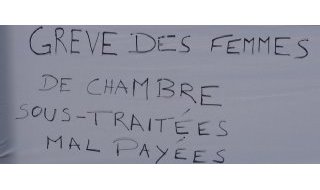 GREVE DES FEMMES
DE CHAMBRE
SOUS-TRAITÉES
MAL PAYÉES